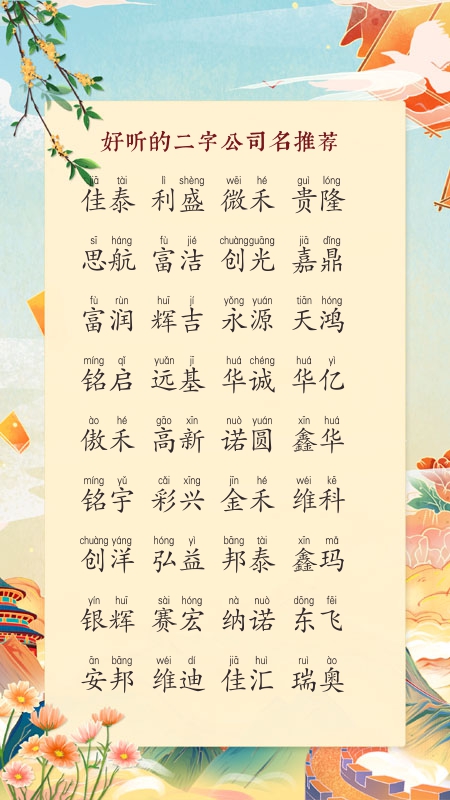 好听的二字公司名推荐
jiā tài lì shèng wēi hé guì lóng
佳泰 利盛 微禾 贵隆
sī háng fù jié chuàng guāng jiā dǐng
思航 富洁 创光 嘉鼎
fù rùn huī jí yǒng yuán tiān hóng
富润 辉吉 永源 天鸿
míng qǐ yuǎn jī huá chéng huá yì
铭启 远基 华诚 华亿
ào hé gāo xīn nuò yuán xīn huá
傲禾 高新 诺圆 鑫华
míng yǔ cǎi xīng jīn hé wéi kē
铭宇 彩兴 金禾 维科
chuàng yáng hóng yì bāng tài xīn mǎ
创洋 弘益 邦泰 鑫玛
yín huī sài hóng nà nuò dōng fēi
银辉 赛宏 纳诺 东飞
ān bāng wéi dí jiā huì ruì ào
安邦 维迪 佳汇 瑞奥